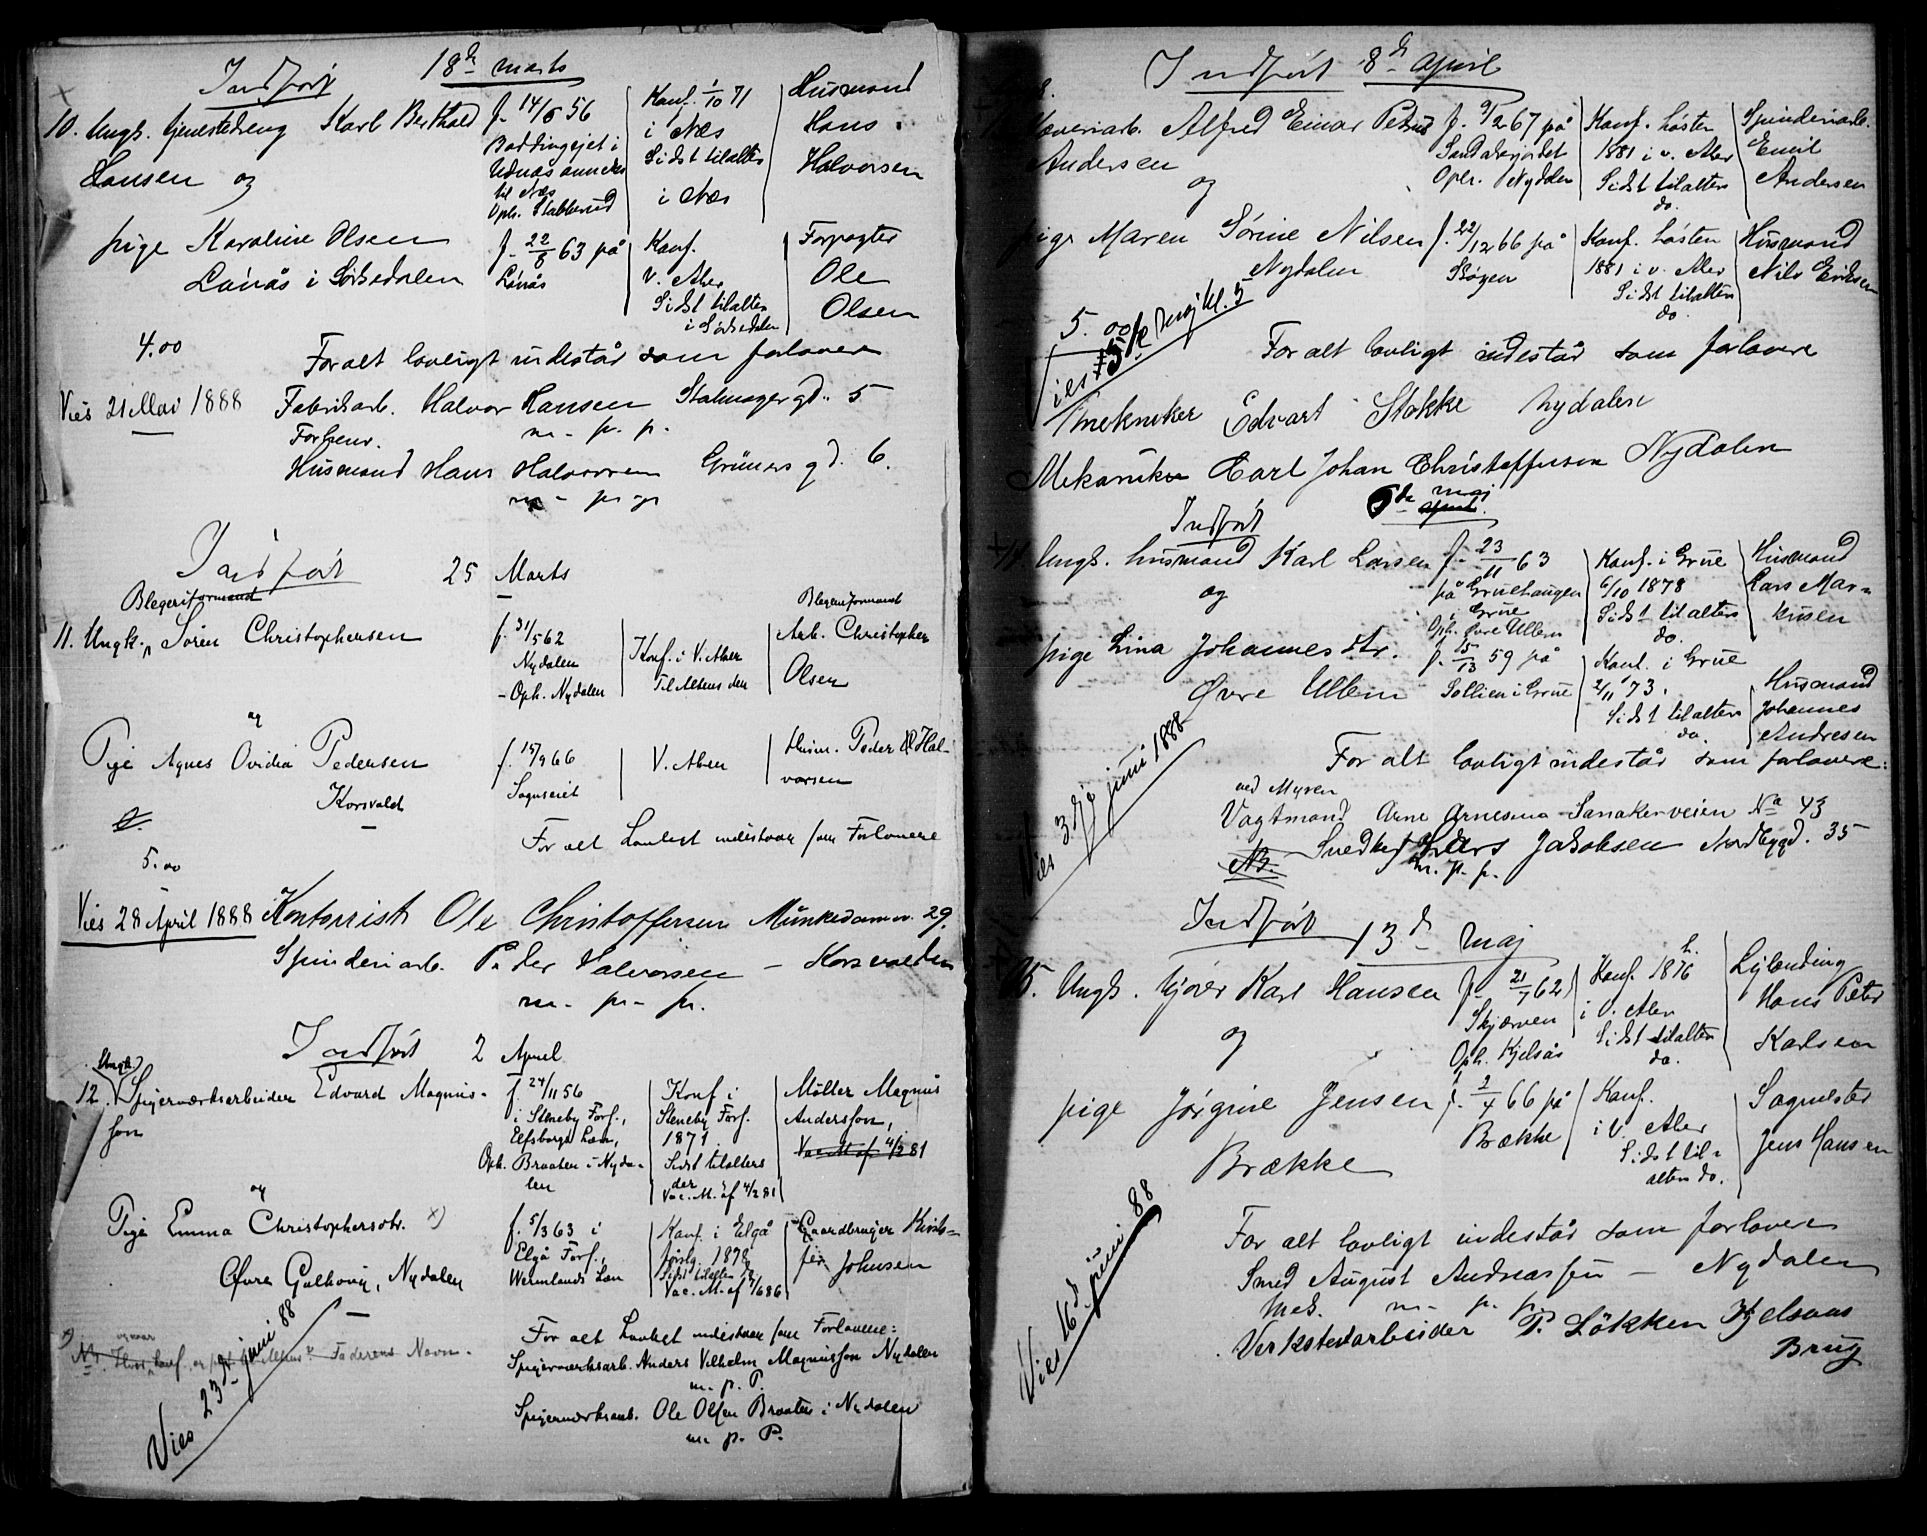 Indført 18d marts
10. Ungk. tjenestedreng Karl Berthold
Hansen og
f. 14/6 56
Boddingejet i
Udnäs anneks
til Næs
Oph. Stabberud
Konf. 1/10 71
i Næs
Sidst tilalters
i Næs
Husmand
Hans
Halvorsen
pige Karoline Olsen
Lønås i Sørkedalen
f. 22/8 63 på
Lønås
Konf.
V. Aker
Sidst tilalters
i Sørkedalen
Forpagter
Ole
Olsen
4.00
For alt lovligt indestår som forlovere
Vies 21 Mai 1888
Fabrikarb. Halvor Hansen Stolmagergd. 5
m. p. p.
Forhenv.
Husmand Hans Halvorsen Grünersgd. 6.
m - p - p
Indført 25 Marts
Blegeriformand
11. Ungk. Søren Christophersen
f. 31/5 62
Nydalen
- Oph. Nydalen
Konf. i V. Aker
Til Alters den
Blegeriformand
Arb. Christopher
Olsen
og
Pige Agnes Ovidia Pedersen
Korsvold
f. 15/9 66
Sogns eiet
V. Aker
Husm. Peder Hal-
vorsen
5.00
For alt Lovligt indestaar som Forlovere
Vies 28 April 1888
Kontorrist Ole Christoffersen Munkedamsv. 29.
Spinderiarb. Peder Halvorsen - Korsvolden
m - p - p.
Indført 2 April
Ungk.
12. Spigerværksarbeider Edvard Magnus-
son
f. 24/11 56
i Steneby Fors.,
Elfsborgs Læn,
Oph. Braaten i Nyda-
len
Konf i
Steneby Fors.
1871
Sidst tilalters
der
Vac. M. af 4/2 81
Møller Magnus
Andersson,
Vac M af 4/2 81
og
Pige Emma Christophersdtr. x)
Øvre Gulhoug, Nydalen
f. 5/3 63 i
Elgå Fors.,
Wermlands Læn
Konf. i Elgå
Forsg. 1878
Sidst tilalters
Vac. M. af 7/6 86
Gaardbruger Kristo-
fer Johnsen
x)
Faderens Navn.
Vies 23de juni 88
For alt Lovligt indestaar som Forlovere:
Spigerværksarb. Anders Vilhelm Magnusson Nydalen
m. p. P.
Spigerværksarb. Ole Olsen Braaten i Nydalen
m. p. P.
Indført 8d April
Væveriarb. Alfred Einar Petrus
Andersen
og
f. 9/2 67 på
Sandakerjordet
Oph. Nydalen
Konf. høsten
1881 i v. Aker
Sidst tilalters
do.
Spinderiarb.
Emil
Andersen
pige Maren Sørine Nilsen
Nydalen
f. 22/12 66 på
Skøyen
Konf. høsten
1881 i v. Aker
Sidst tilalters
do
Husmand
Nils Eriksen
5.00
Vies 5te maj kl. 5
For alt lovligt indestår som forlovere
Edvart Stokke Nydalen
Mekaniker Carl Johan Christoffersen Nydalen
Indført 6te maj
april.
Ungk. husmand Karl Larsen
og
f. 23/11 63
på Gruehaugen
i Grue
Oph. Øvre Ullern
Konf. i Grue
6/10 1878
Sidst tilalters
do.
Husmand
Lars Mar-
kusen
pige Lina Johannesdtr.
Øvre Ullern
f. 15/13 59 på
Sollien i Grue
Konf. i Grue
2/11 73.
Sidst tilalters
do.
Husmand
Johannes
Andresen
Vies 3dje juni 1888
For alt lovligt indestår som forlovere:
ved Myren
Vagtmand Arne Arnesen Sanakerveien No 43
NB.
Snedker Lars Jakobsen Nordbygd. 35
m. p. p.
Indført 13d maj
15. Ungk. kjører Karl Hansen
og
f. 21/7 62
Skjærven
Oph. Kjelsås
Konf. 1876 h.
i V. Aker
Sidst tilalters
do.
Lejlending
Hans Peter
Karlsen
pige Jørgine Jensen
Brække
f. 2/4 66 på
Brække
Konf.
i V. Aker
Sidst til-
alters do.
Sagmester
Jens Hansen
Vies 16d juni 88
For alt lovligt indestår som forlovere
Smed August Andreassen - Nydalens
Mek. m - p. p.
Verkstedarbeider P. Løkken Kjelsaas
Brug